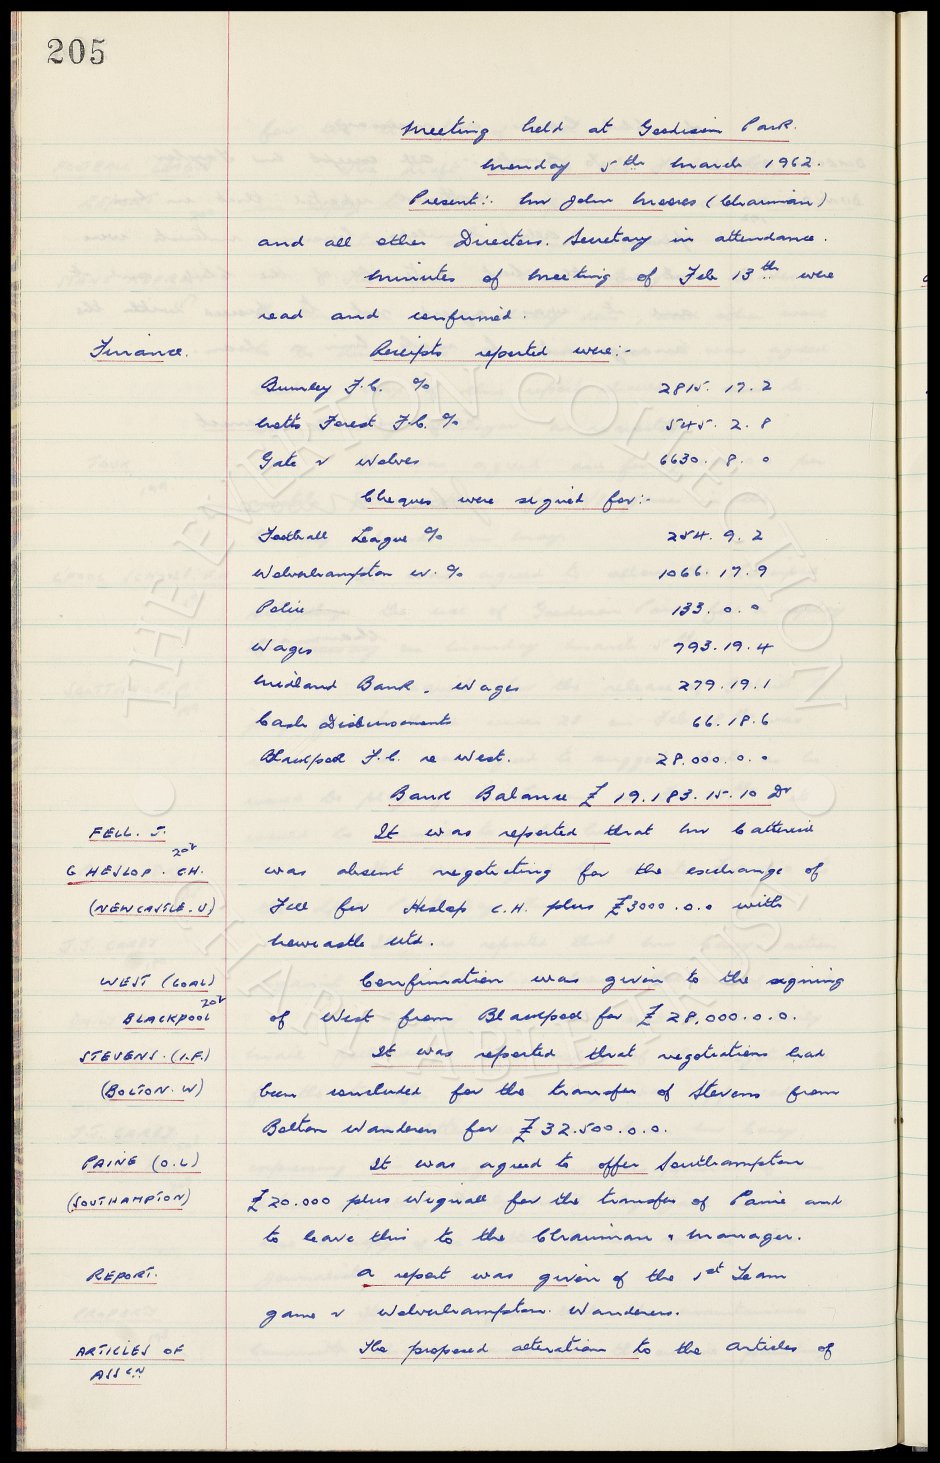 205
Meeting held at Goodison Park.
Monday 5th March 1962.
Present:- Mr John Moores (Chairman)
and all other Directors. Secretary in attendance.
Minutes of meeting of Feb 13th were
read and confirmed.
Finance. Receipts reported were:-
Burnley F.C. % 2815. 17. 2
Notts Forest F.C. % 545. 2. 8
Gate v Wolves 6630. 8. 0
Cheques were signed for:-
Football League % 254. 9. 2
Wolverhampton W. % 1066. 17. 9
Police 133. 0. 0
Wages 793. 19. 4
Midland Bank. Wages 279. 19. 1
Cash Disbursements 66. 18. 6
Blackpool F.C. re West. 28.000. 0. 0
Bank Balance £ 19.183. 15. 10 Dr
FELL. J. It was reported that Mr Catterick
G HESLOP. C.H. was absent negotiating for the exchange of
(NEWCASTLE. U) Fell for Heslop C.H. plus £3000. 0. 0 with
Newcastle Utd.
WEST (GOAL) Confirmation was given to the signing
BLACKPOOL of West from Blackpool for £ 28,000. 0. 0.
STEVENS. (I.F.) It was reported that negotiations had
(BOLTON. W) been concluded for the transfer of Stevens from
Bolton Wanderers for £ 32.500. 0. 0.
PAINE (O.L) It was agreed to offer Southampton
(SOUTHAMPTON) £ 20.000 plus Wignall for the transfer of Paine and
to leave this to the Chairman & Manager.
REPORT. A report was given of the 1st Team
game v Wolverhampton Wanderers.
ARTICLES OF The proposed alteration to the Articles of
ASSCN
THE EVERTON COLLECTION CHARITABLE TRUST